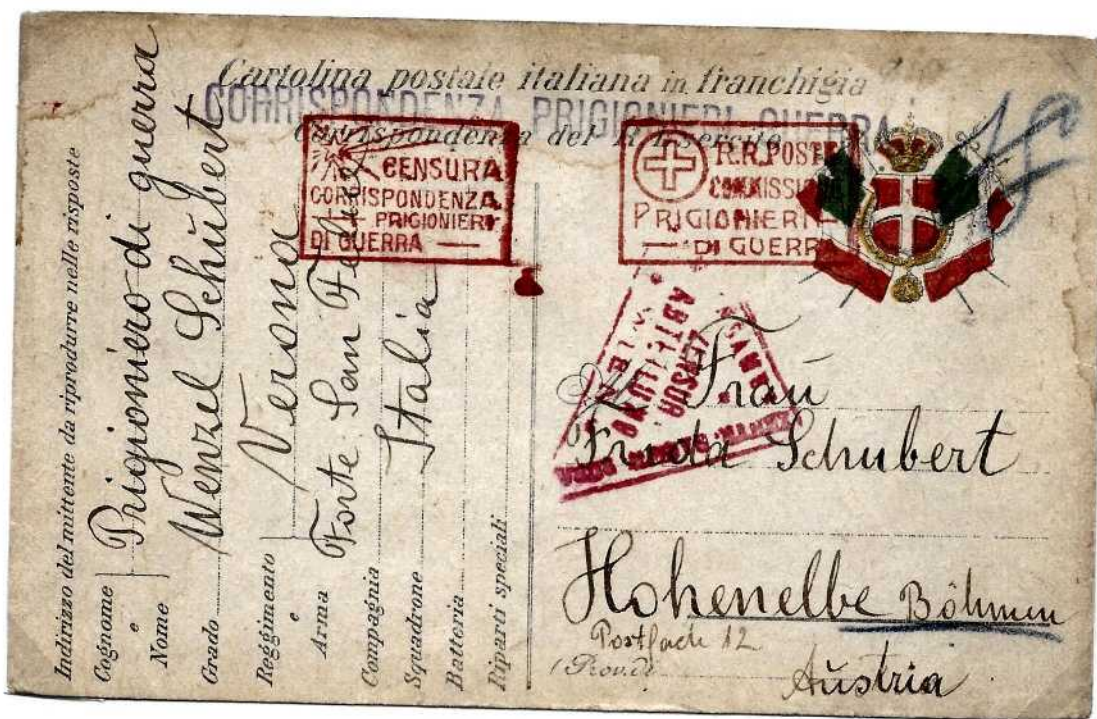 Cartolina postale italiana in franchigia
CORRISPONDENZA PRIGIONIERI GUERRA
Corrispondenza del R. Esercito
CENSURA
CORRISPONDENZA
PRIGIONIERI
DI GUERRA
R.R. POSTE
COMMISSIONE
PRIGIONIERI
DI GUERRA
Indirizzo del mittente da riprodurre nelle risposte
Cognome
e
Nome
Prigioniero di guerra
Wenzel Schubert
Grado
Reggimento
e
Arma
Verona
Forte San
Compagnia
Italia
Squadrone
Batteria
Riparti speciali
ZENSUR
ABTEILUNG
WIEN
Frau
Frida Schubert
Hohenelbe Böhmen
Postfach 12
(Prov. di
Austria